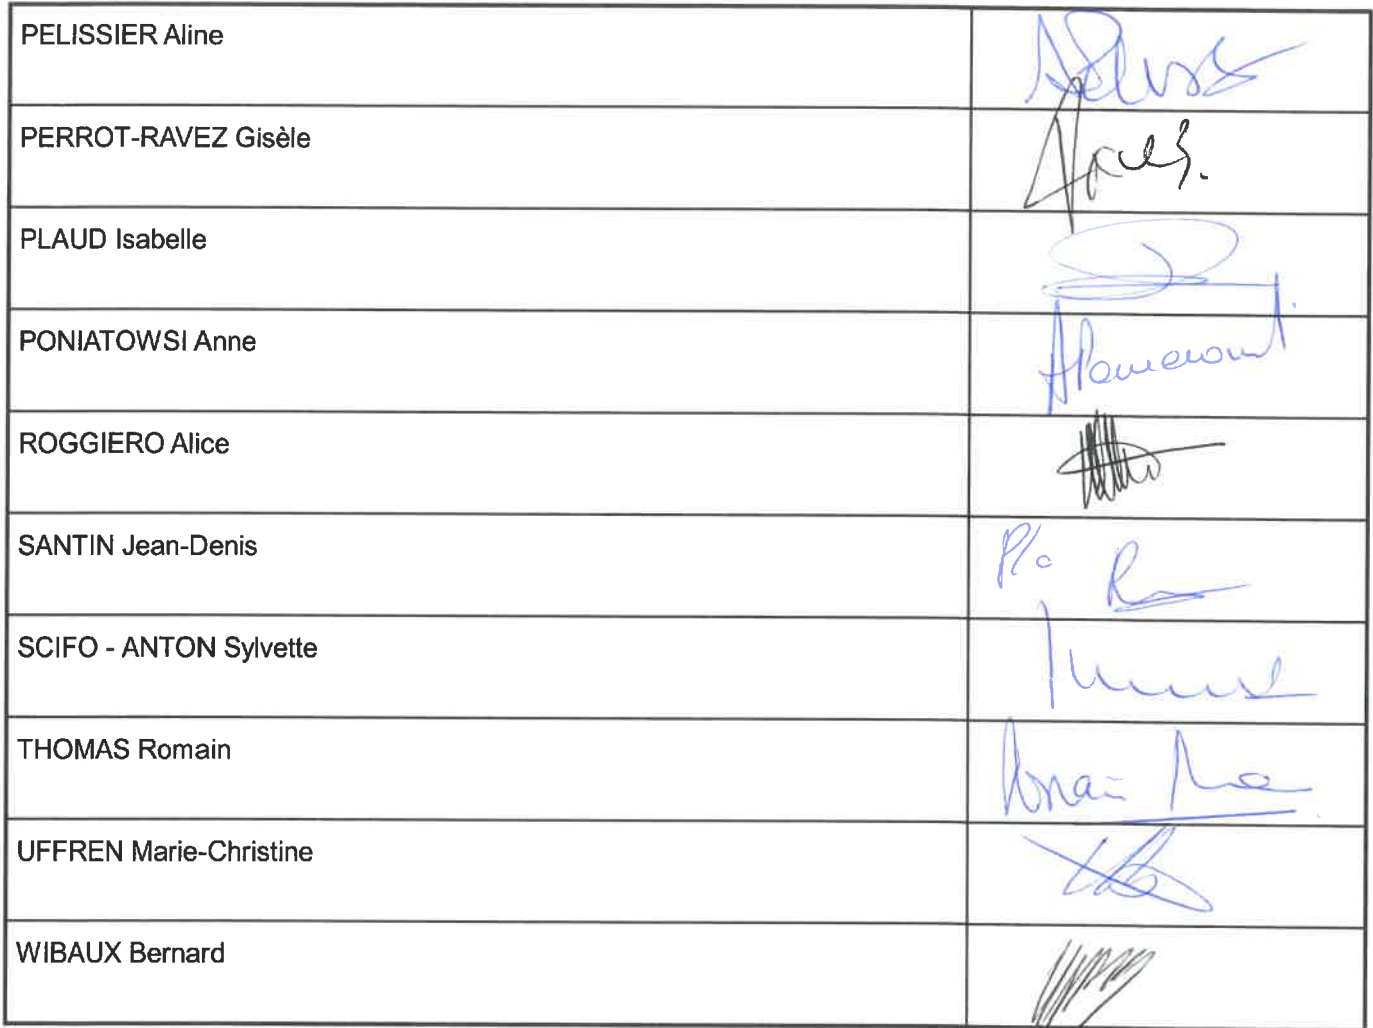 PELISSIER Aline
PERROT-RAVEZ Gisèle
PLAUD Isabelle
PONIATOWSI Anne
ROGGIERO Alice
SANTIN Jean-Denis
P/o
SCIFO - ANTON Sylvette
THOMAS Romain
UFFREN Marie-Christine
WIBAUX Bernard